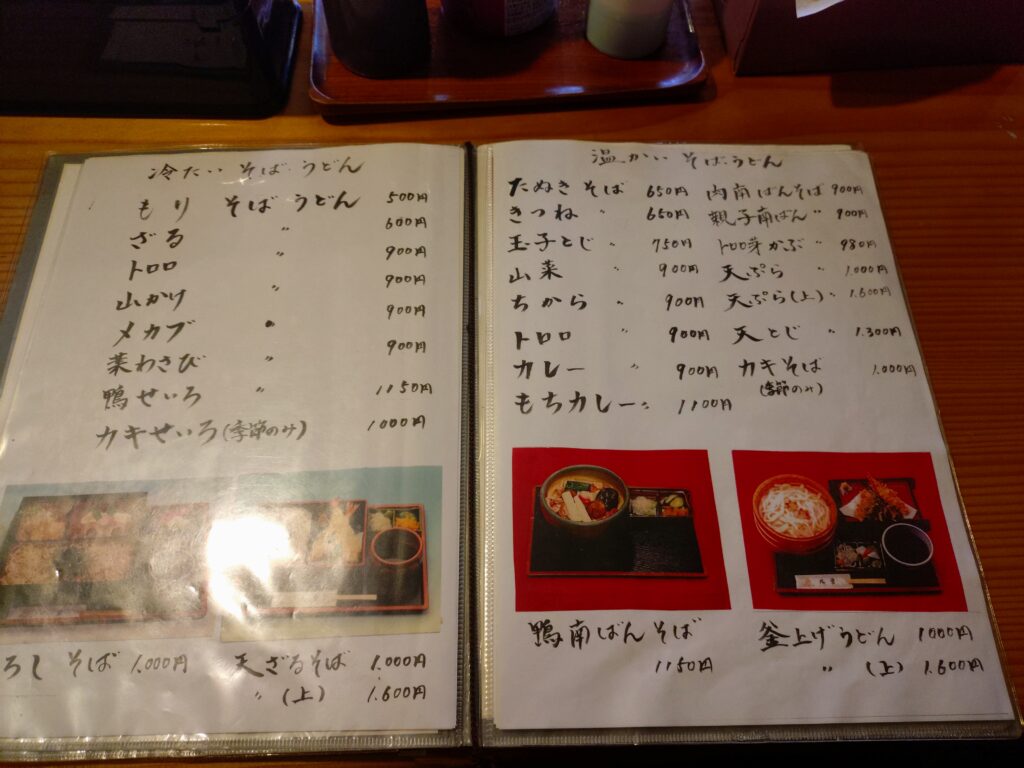 冷たい そば・うどん
もり そば うどん 500円
ざる 〃 600円
トロロ 〃 900円
山かけ 〃 900円
メカブ 〃 900円
葉わさび 〃 900円
鴨せいろ 〃 1150円
カキせいろ(季節のみ) 1000円
ろし そば 1.000円
天ざるそば 1.000円
〃 (上) 1.600円
温かい そば・うどん
たぬき そば 650円
きつね 〃 650円
玉子とじ 〃 750円
山菜 〃 900円
ちから 〃 900円
トロロ 〃 900円
カレー 〃 900円
もちカレー 〃 1100円
肉南ばんそば 900円
親子南ばん 〃 900円
トロロ芽かぶ 〃 980円
天ぷら 〃 1.000円
天ぷら(上) 〃 1.600円
天とじ 〃 1.300円
カキそば 1.000円
(季節のみ)
鴨南ばんそば
1150円
釜上げうどん 1000円
〃 (上) 1.600円